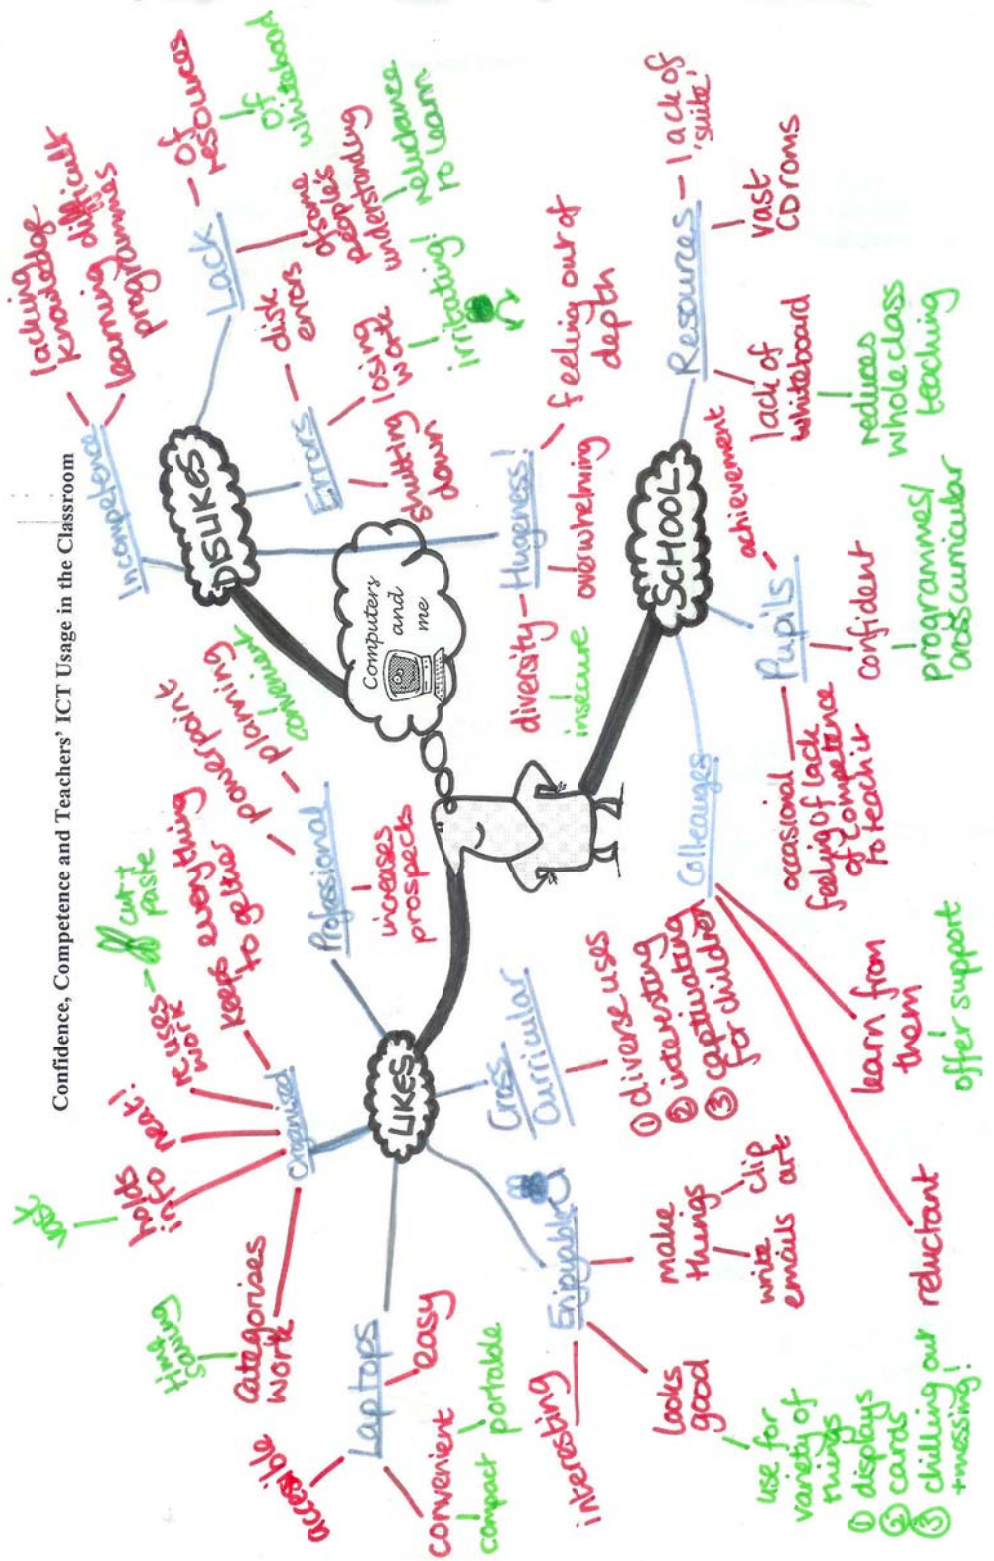 Confidence, Competence and Teachers' ICT Usage in the Classroom
Computers
and
me
LIKES
Laptops
accesible
easy
convenient
compact
portable
Organised
Categorises
work
time
saving
holds
info
vast
neat!
reuses
work
cut +
paste
keeps everything
to gether
Professional
powerpoint
planning
convenient
increases
prospects
Cross
Curricular
① diverse uses
② interesting
③ captivating
for children
Enjoyable
interesting
looks
good
use for
variety of
things
① displays
② cards
③ chilling out
+messing!
make
things
clip
art
write
emails
DISLIKES
Incompetence
lacking
knowledge
learning difficult
programmes
Lack
of
resources
of
whiteboard
of some
people's
understanding
reluctance
to learn
Errors
disk
errors
losing
work
irritating!
shutting
down
Hugeness!
feeling out of
depth
overwhelming
diversity
insecure
SCHOOL
Resources
lack of
'suite'
vast
CD roms
lack of
whiteboard
reduces
whole class
teaching
Pupils
achievement
confident
programmes/
crosscurricular
occasional
feeling of lack
of competence
to teach it
Colleauges
learn from
them
offer support
reluctant